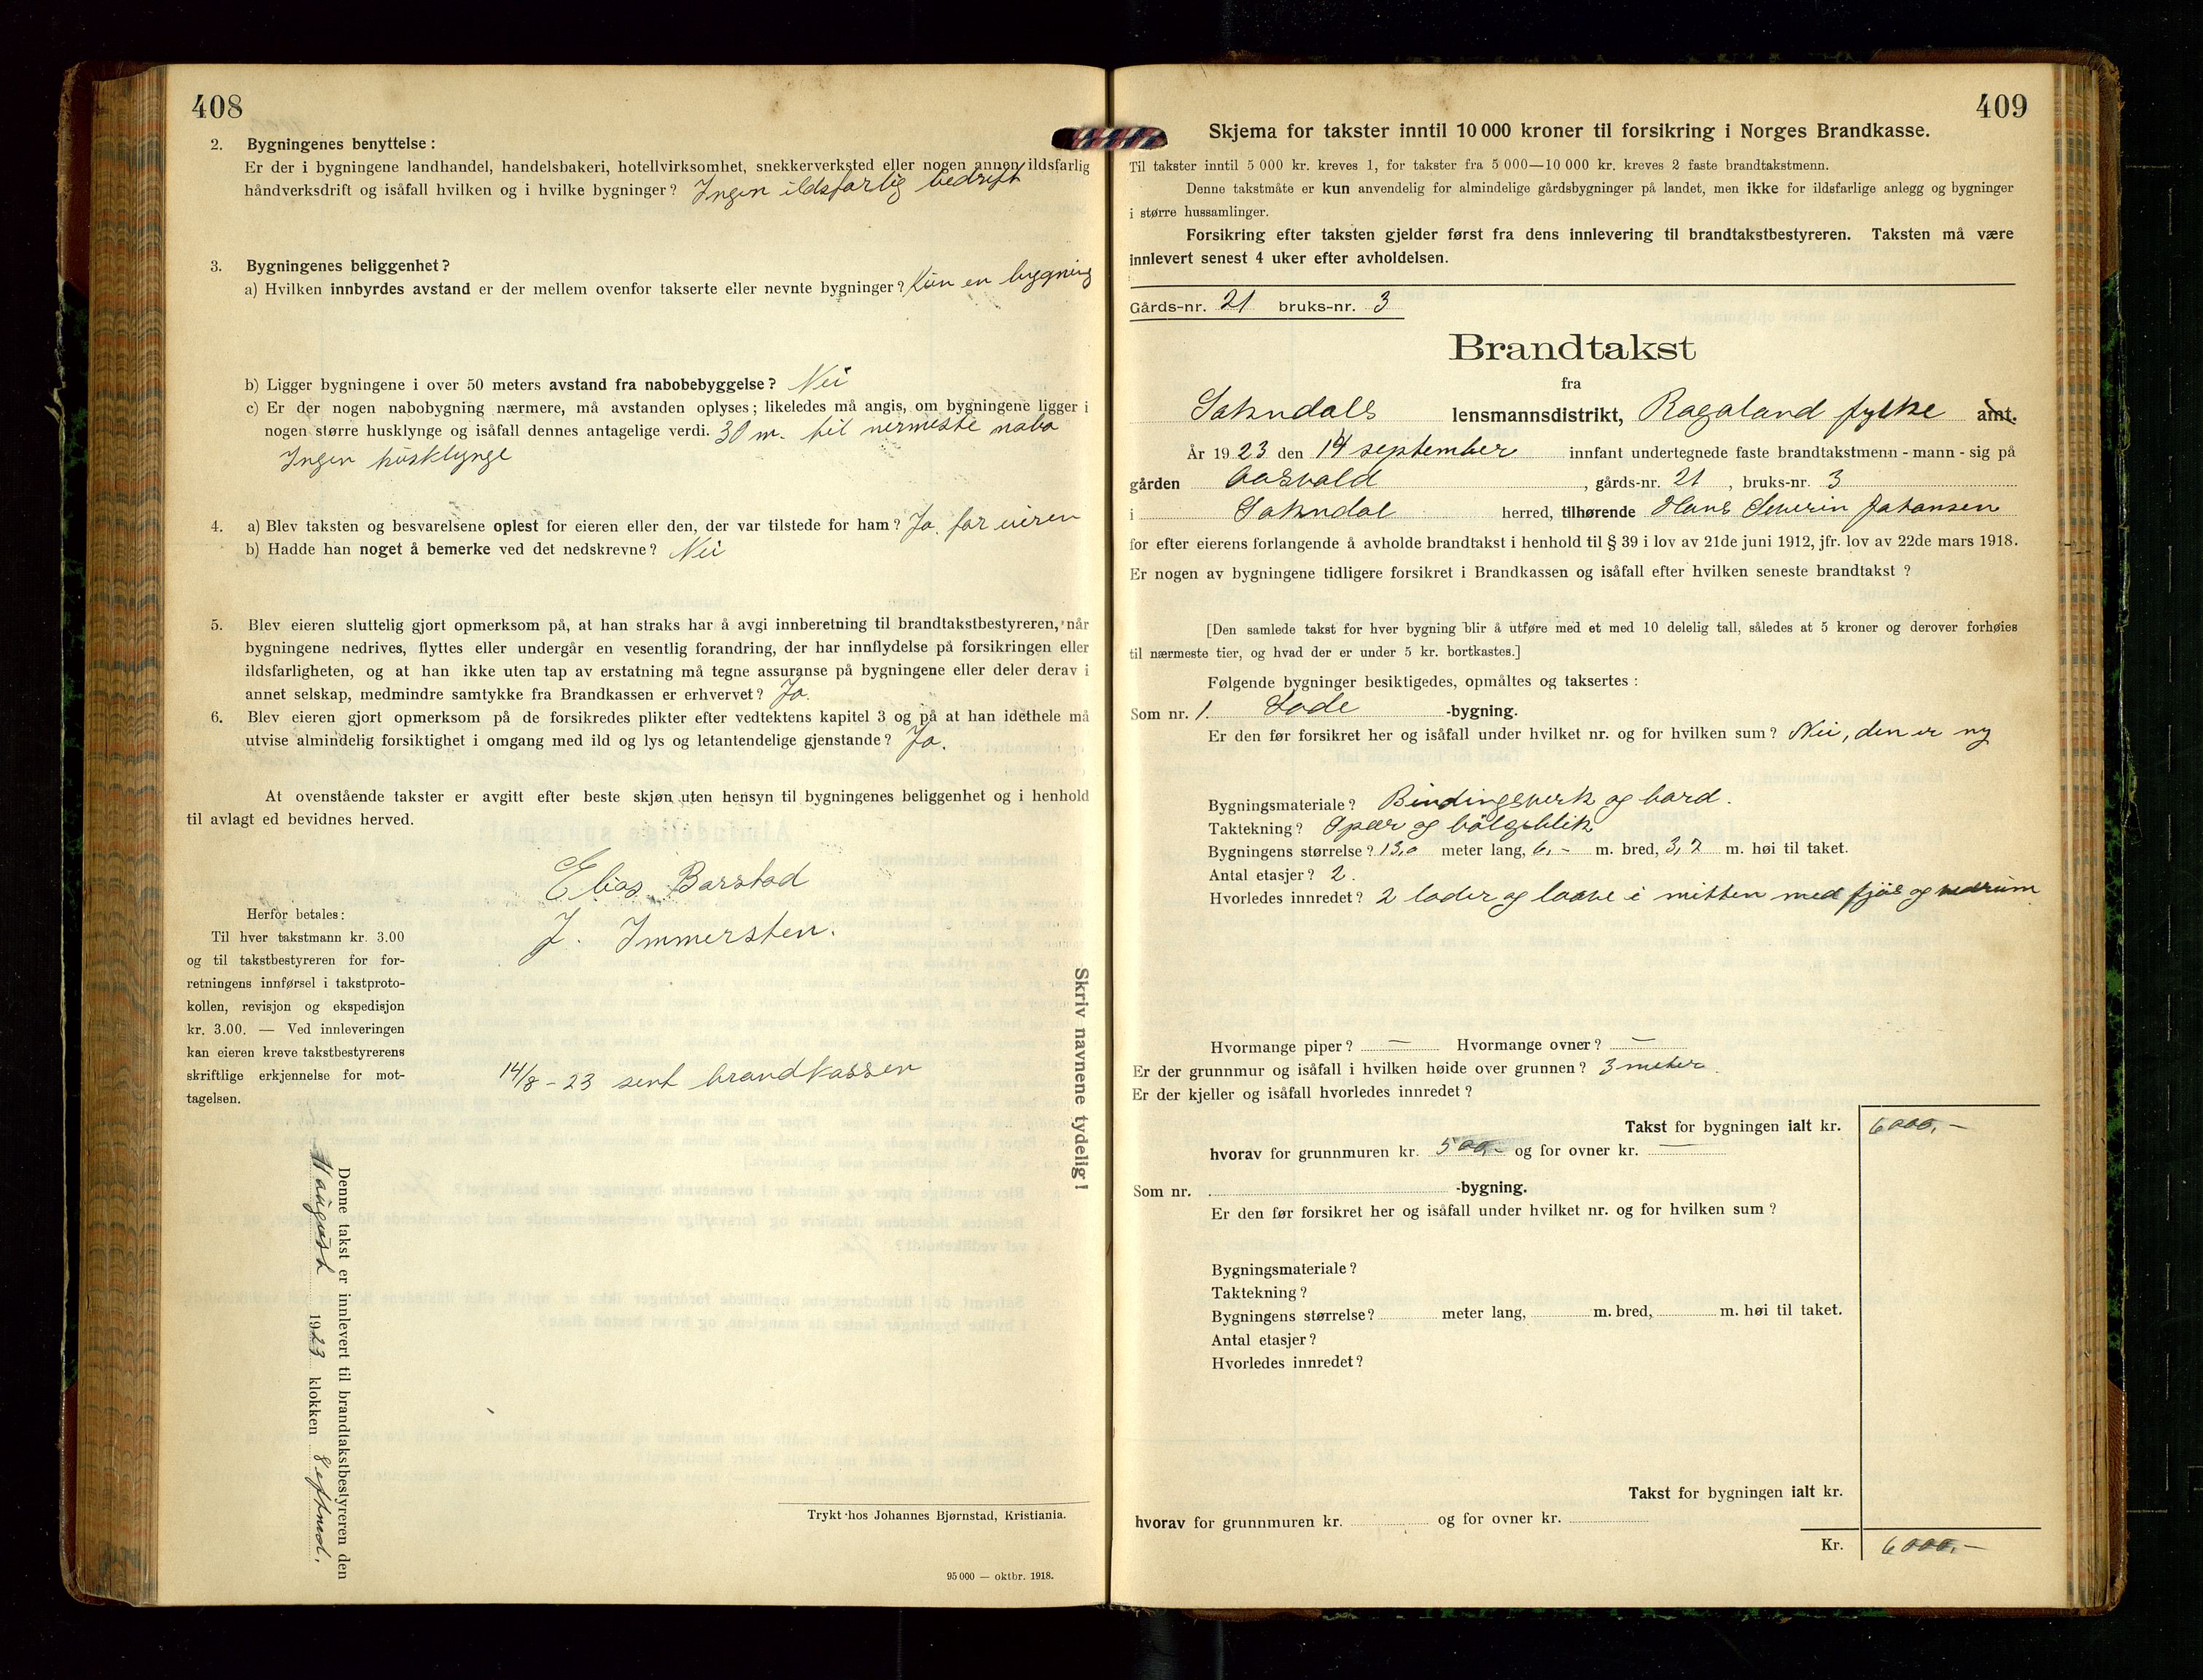 408
2. Bygningenes benyttelse:
Er der i bygningene landhandel, handelsbakeri, hotellvirksomhet, snekkerverksted eller nogen annen ildsfarlig
håndverksdrift og isåfall hvilken og i hvilke bygninger? Ingen ildsfarlig bedrift
3. Bygningenes beliggenhet?
a) Hvilken innbyrdes avstand er der mellem ovenfor takserte eller nevnte bygninger? Kun en bygning
b) Ligger bygningene i over 50 meters avstand fra nabobebyggelse? Nei
c) Er der nogen nabobygning nærmere, må avstanden oplyses; likeledes må angis, om bygningene ligger i
nogen større husklynge og isåfall dennes antagelige verdi. 30 m. til nermeste nabo
Ingen husklynge
4. a) Blev taksten og besvarelsene oplest for eieren eller den, der var tilstede for ham? Ja. for eieren
b) Hadde han noget å bemerke ved det nedskrevne? Nei
5. Blev eieren sluttelig gjort opmerksom på, at han straks har å avgi innberetning til brandtakstbestyreren, når
bygningene nedrives, flyttes eller undergår en vesentlig forandring, der har innflydelse på forsikringen eller
ildsfarligheten, og at han ikke uten tap av erstatning må tegne assuranse på bygningene eller deler derav i
annet selskap, medmindre samtykke fra Brandkassen er erhvervet? Ja.
6. Blev eieren gjort opmerksom på de forsikredes plikter efter vedtektens kapitel 3 og på at han idethele må
utvise almindelig forsiktighet i omgang med ild og lys og letantendelige gjenstande? Ja.
At ovenstående takster er avgitt efter beste skjøn uten hensyn til bygningenes beliggenhet og i henhold
til avlagt ed bevidnes herved.
Elias Barstad
J. Immersten.
Herfor betales:
Til hver takstmann kr. 3.00
og til takstbestyreren for for-
retningens innførsel i takstproto-
kollen, revisjon og ekspedisjon
kr. 3.00. — Ved innleveringen
kan eieren kreve takstbestyrerens
skriftlige erkjennelse for mot-
tagelsen.
14/8 - 23 sent brandkassen
Skriv navnene tydelig!
Denne takst er innlevert til brandtakstbestyreren den
august 1923 klokken 8 eftmed.
Trykt hos Johannes Bjørnstad, Kristiania.
95 000 — oktbr. 1918.
409
Skjema for takster inntil 10 000 kroner til forsikring i Norges Brandkasse.
Til takster inntil 5 000 kr. kreves 1, for takster fra 5 000—10 000 kr. kreves 2 faste brandtakstmenn.
Denne takstmåte er kun anvendelig for almindelige gårdsbygninger på landet, men ikke for ildsfarlige anlegg og bygninger
i større hussamlinger.
Forsikring efter taksten gjelder først fra dens innlevering til brandtakstbestyreren. Taksten må være
innlevert senest 4 uker efter avholdelsen.
Gårds-nr. 21 bruks-nr. 3
Brandtakst
fra
Sokndals lensmannsdistrikt, Rogaland fylke amt.
År 1923 den 14 september innfant undertegnede faste brandtakstmenn - mann - sig på
gården Aasvald, gårds-nr. 21, bruks-nr. 3
i Sokndal herred, tilhørende Hans Severin Johansen
for efter eierens forlangende å avholde brandtakst i henhold til § 39 i lov av 21de juni 1912, jfr. lov av 22de mars 1918.
Er nogen av bygningene tidligere forsikret i Brandkassen og isåfall efter hvilken seneste brandtakst?
[Den samlede takst for hver bygning blir å utføre med et med 10 delelig tall, således at 5 kroner og derover forhøies
til nærmeste tier, og hvad der er under 5 kr. bortkastes.]
Følgende bygninger besiktigedes, opmåltes og taksertes:
Som nr. 1. Lode -bygning.
Er den før forsikret her og isåfall under hvilket nr. og for hvilken sum? Nei, den er ny
Bygningsmateriale? Bindingsverk og bord.
Taktekning? Spær og bölgeblik
Bygningens størrelse? 13,0 meter lang, 6,- m. bred, 3,7 m. høi til taket.
Antal etasjer? 2.
Hvorledes innredet? 2 loder og laave i mitten med fjös og vedrum
Hvormange piper? — Hvormange ovner? —
Er der grunnmur og isåfall i hvilken høide over grunnen? 3 meter.
Er der kjeller og isåfall hvorledes innredet?
Takst for bygningen ialt kr. 6000,-
hvorav for grunnmuren kr. 500,- og for ovner kr. —
Som nr. -bygning.
Er den før forsikret her og isåfall under hvilket nr. og for hvilken sum?
Bygningsmateriale?
Taktekning?
Bygningens størrelse? meter lang, m. bred, m. høi til taket.
Antal etasjer?
Hvorledes innredet?
Takst for bygningen ialt kr.
hvorav for grunnmuren kr. og for ovner kr.
Kr. 6000,-